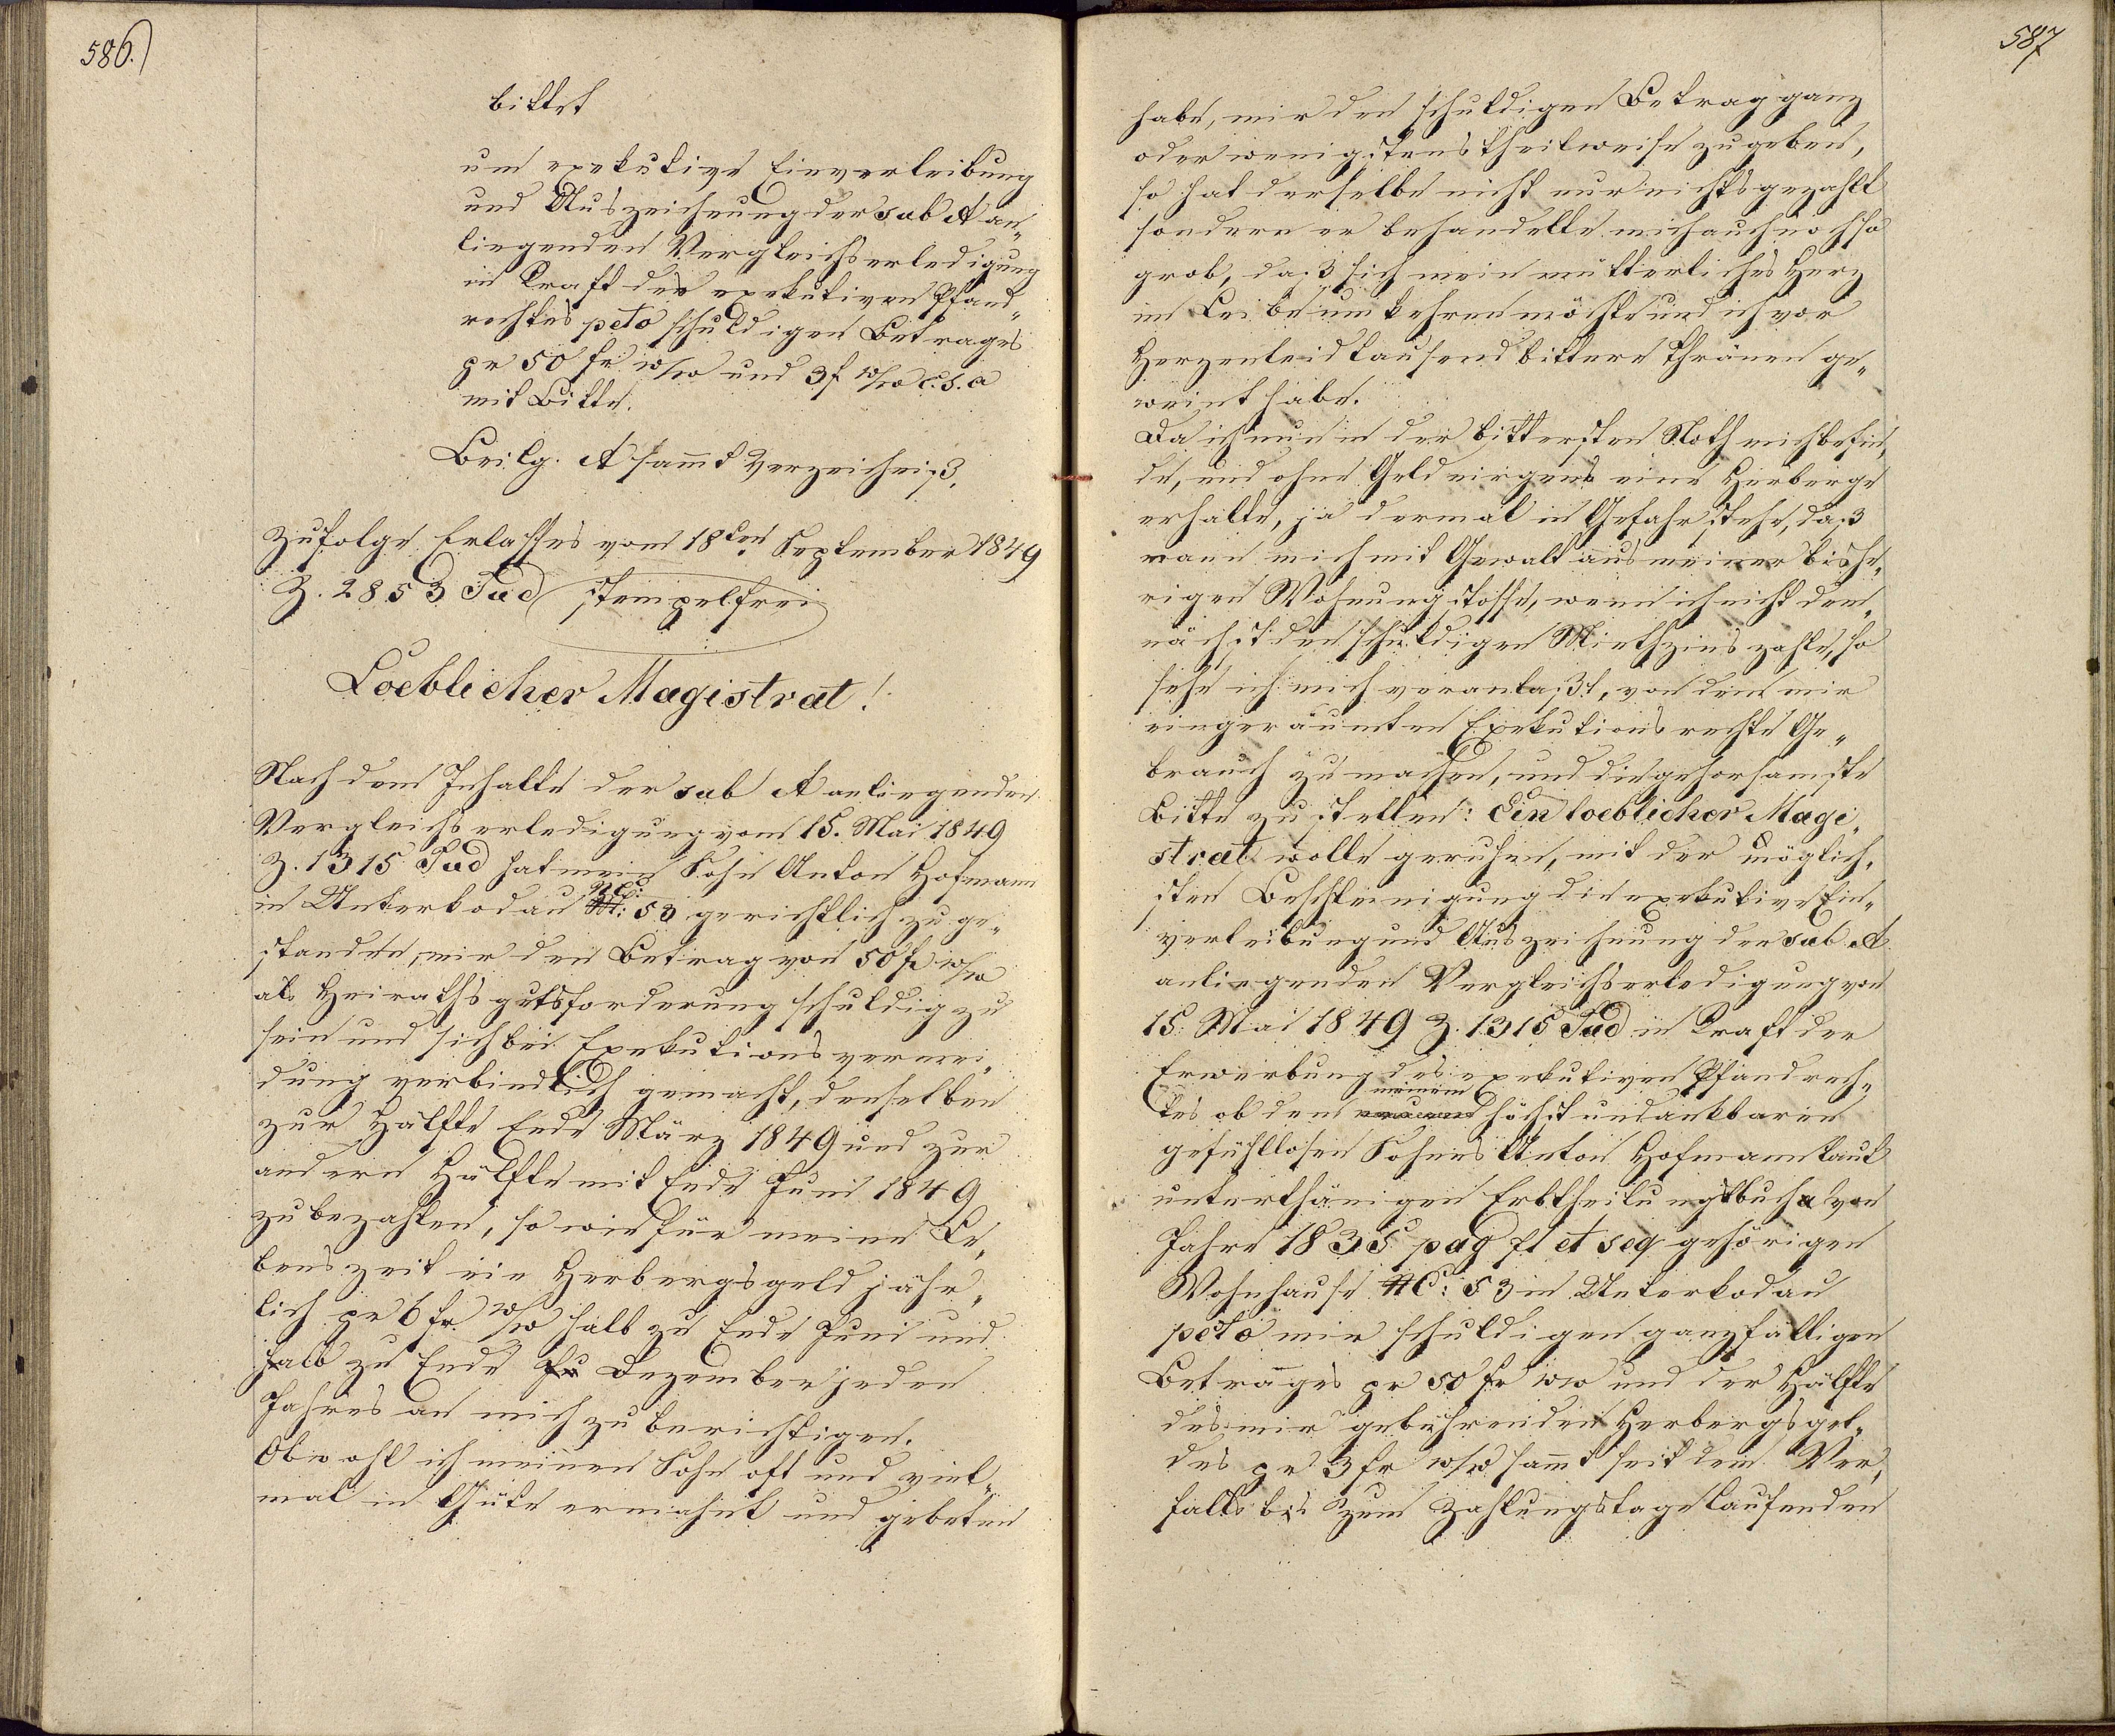 586.)
bittet
um exekutive Einverleibung
und Auszeichnung der sub A an„
liegenden Vergleichserledigung
in Kraft des exekutiven Pfand„
rechtes peto schuldigen Betrages
pr 50 fr w/w und 3 f w/w c. s. a
mit Bitte.
Beilg. A sammt Verzeichniß.
Zufolge Erlasses vom 18ten September 1849
Z. 2853 Jud stempelfrei
Loeblicher Magistrat!
Nach dem Inhalte der sub A anliegenden
Vergleichserledigung vom 15. Mai 1849
Z. 1315 Jud hat mein Sohn Anton Hofmann
in Unterkodau NC: 53 gerichtlich zuge„
standen, mir den Betrag von 50 fr w/w
als Heirathsgutsforderung schuldig zu
sein und sich bei Exekutionsvermei„
dung verbindlich gemacht, denselben
zur Hälfte Ende März 1849 und zur
andern Hälfte mit Ende Juni 1849
zu bezahlen, so wie für meine Le„
benszeit ein Herbergsgeld jähr„
lich pr 6 fr w/w halb zu Ende Juni und
halb zu Ende Ju Dezember jeden
Jahres an mich zu berichtigen.
Obwohl ich meinen Sohn oft und viel„
mal in Güte ermahnt und gebeten
587
habe, mir den schuldigen Betrag ganz
oder wenigstens theilweise zu geben,
so hat derselbe nicht nur nichts gezahlt
sondern er behandelte mich auch noch so
grob, daß sich mein mütterliches Herz
im Leibe umkehren möchte und ich vor
Herzenleid tausend bittere Thränen ge„
weint habe.
Da ich nun in der bittersten Noth mich befin„
de, und ohne Geld nirgens eine Herberge
erhalte, ja dermal in Gefahr stehe, daß
mann mich mit Gewalt aus meiner bishe„
rigen Wohnung stosse, wenn ich nicht dem„
nächst den schuldigen Miethzins zahle, so
sehe ich mich veranlaßt, von dem mir
eingeräumten Exekutionsrechte Ge„
brauch zu machen, und die gehorsamste
Bitte zu stellen: Ein loeblicher Magi„
strat wolle geruhen, mit der möglich„
sten Beschleinigung die exekutive Ein„
verleibung und Auszeichnung der sub A
anliegenden Vergleichserledigung von
15. Mai 1849 Z. 1315 Jud in Kraft der
Erwerbung des exekutiven Pfandrech„
tes ob dem meinem höchst undankbaren
gefühllosen Sohnes Anton Hofmann laut
unterthänigen Erbtheilungsbuch a von
Jahre 1835 pag 71 et seq gehörigen
Wohnhause NC: 53 in Unterkodau
peto mir schuldigen ganzfälligen
Betrages pr 50 fr ww und der Hälfte
des mir gebührenden Herbergsgel„
des pr 3 fr w/w sammt seit dem Ver„
falls bis zum Zahlungstage laufenden